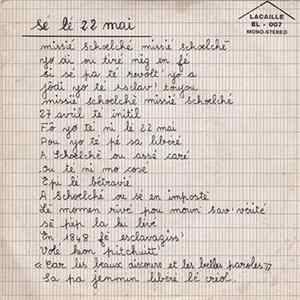 sé lé 22 mai
LACAILLE
BL - 007
MONO-STEREO
missié schœlchè missié schœlchè
yo ai ou tiré nèg en fè
si sé pa té révolt' yo a
jôdi yo té esclav' toujou
missié schœlchè missié schœlchè
27 avril té initil
Fô yo té ni lé 22 mai
Pou yo té pé sa libéré
A Schœlchè ou assé caré
ou té ni mo cosé
Épi lé bétravié
A Schœlchè ou sé en imposté
Lè momen rivé pou moun sav' vérité
sé pèp la ki lévé
En 1848 fè esclavagiss'
Volé kon pitchuit
« Car les beaux discours et les belles paroles »
Sa pa jenmin libéré lé créol.